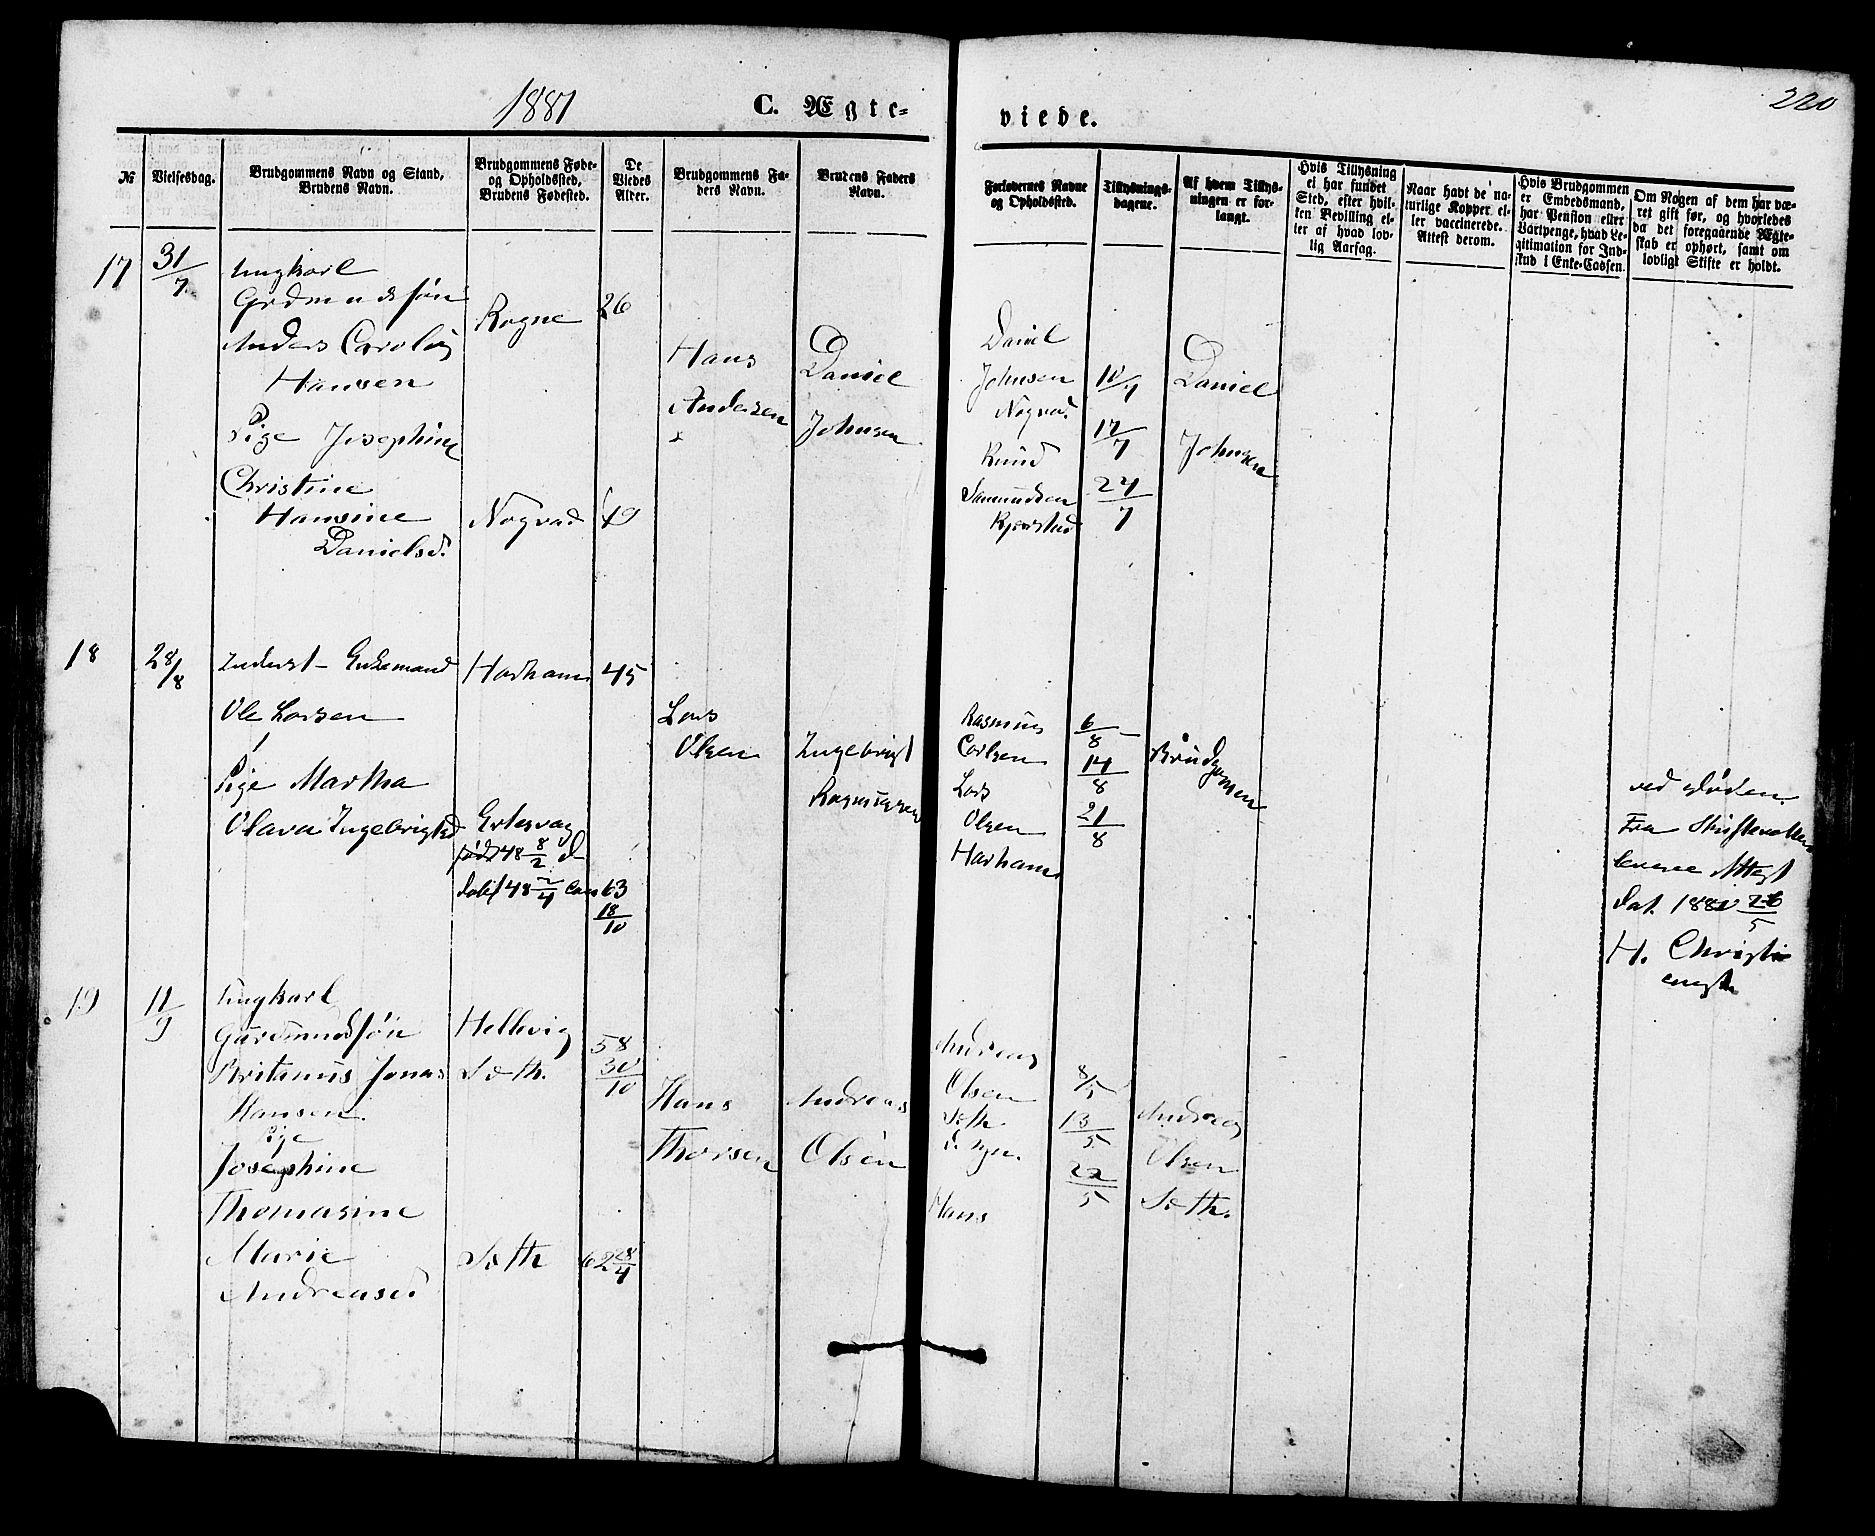 1881
C. Ægte-
viede.
220
№
Vielsesdag.
Brudgommens Navn og Stand,
Brudens Navn.
Brudgommens Føde-
og Opholdssted,
Brudens Fødested.
De
Viedes
Alder.
Brudgommens Fa-
ders Navn.
Brudens Faders
Navn.
Forlovernes Navne
og Opholdssted.
Tillysnings-
dagene.
Af hvem Tillys-
ningen er for-
langt.
Hvis Tillysning
ei har fundet
Sted, efter hvil-
ken Bevilling el-
ler af hvad lov-
lig Aarsag.
Naar havt de na-
turlige Kopper el-
ler vaccinerede.
Attest derom.
Hvis Brudgommen
er Embedsmand,
har Pension eller
Vartpenge, hvad Le-
gitimation for Ind-
skud i Enke-Cassen.
Om Nogen af dem har væ-
ret gift før, og hvorledes
da det foregaaende Ægte-
skab er ophørt, samt om
lovligt Skifte er holdt.
17
31/7
Ungkarl
Grdmandssøn
Anders Carolus
Hansen
Pige Josephine
Christine
Hansine
Danielsd.
Rogne
Nogvad
26
19
Hans
Andersen
Daniel
Johnsen
Daniel
Johnsen
Nogvad
Knud
Samundsen
Kjerstad
10/7
17/7
24/7
Daniel
Johnsen
18
28/8
Inderst Enkemand
Ole Larsen
Pige Martha
Olava Ingebrigtsd
Harham
Ertesvag
født 48 8/2
døbt 48 2/4
45
63
18/10
Lars
Olsen
Ingebrigt
Rasmussen
Rasmus
Carlsen
Lars
Olsen
Harham
6/8
14/8
21/8
Brudgommen
ved Døden.
Fra Skifteretten
Attest
dat. 1881 26/5
H.
19
11/9
Ungkarl
Gardmandssøn
Britanus Jonas
Hansen
Pige
Josephine
Thomasine
Marie
Andreasd
Hellevig
Søth.
Søth
58
30/10
62 28/4
Hans
Thorsen
Andreas
Olsen
Andreas
Olsen
Søth
Hans
8/5
15/5
22/5
Andreas
Olsen
Søth.